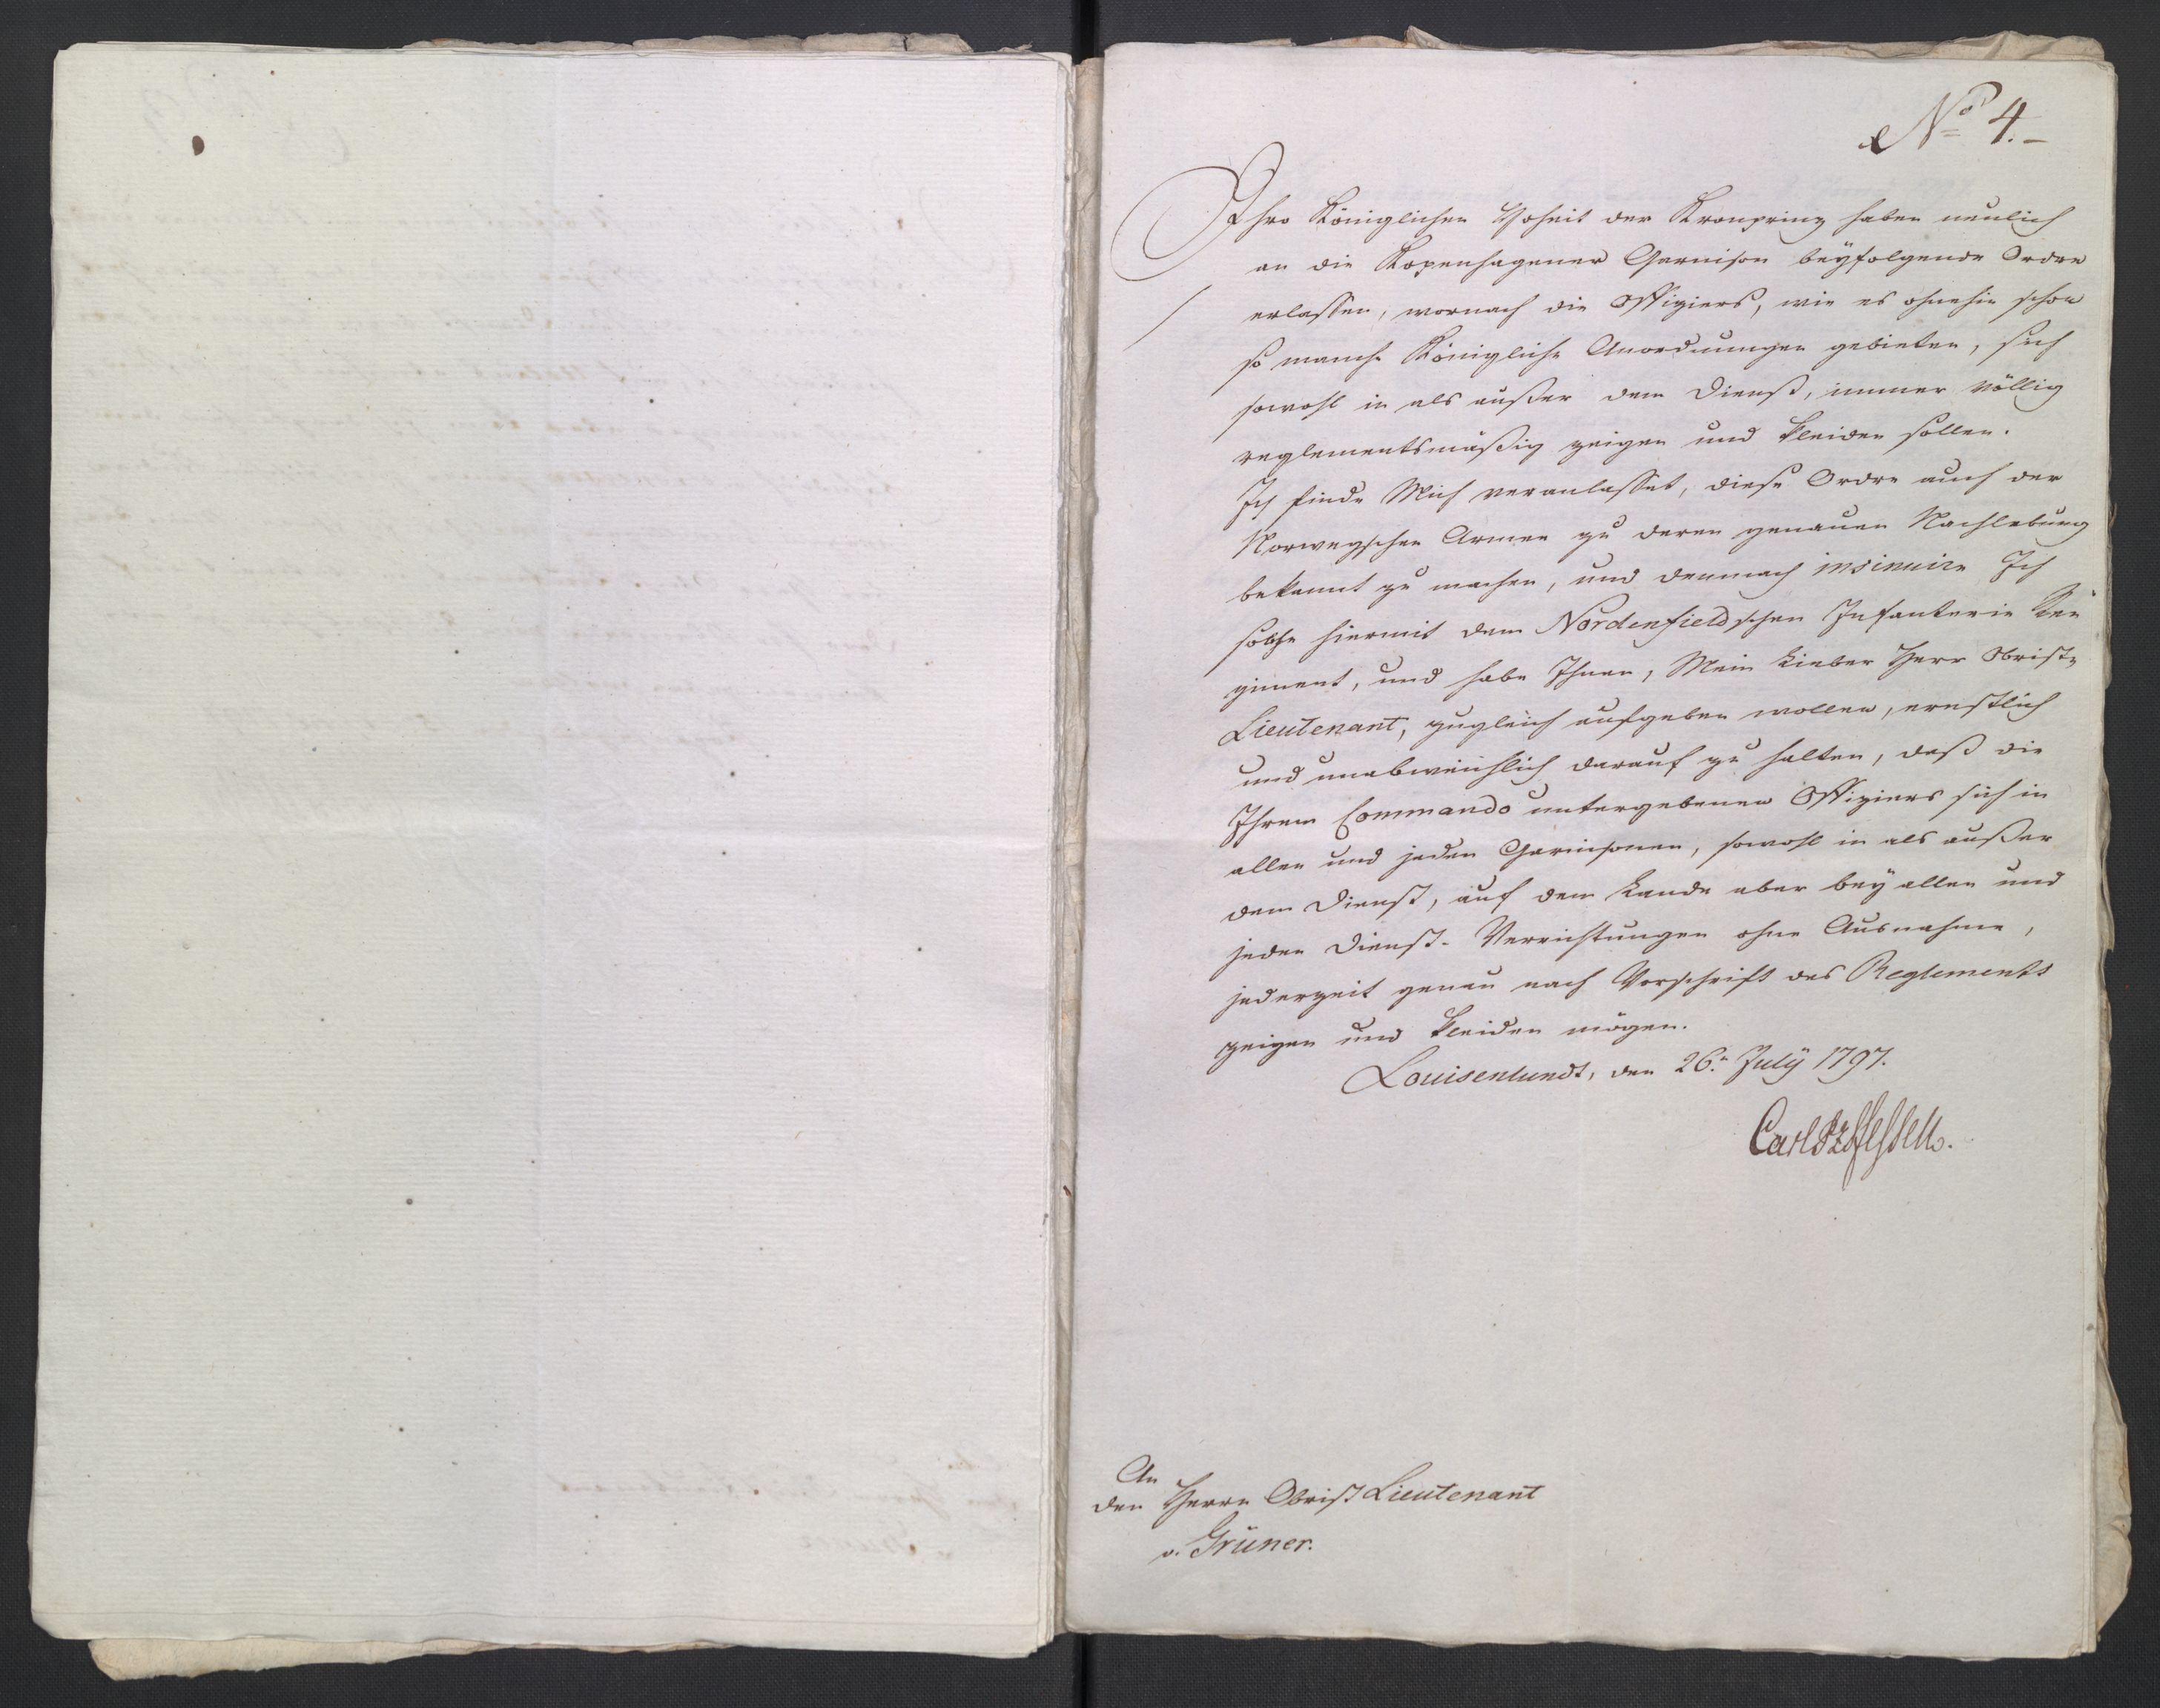 No 4.-
Ihro Königlichen Hoheit der Kronprinz haben neulich
an die Kopenhagener Garnison beÿfolgende Ordre
erlassen, wornach die Offiziers, wie es ohnehin schon
so manche Königliche Anordnungen gebieten, sich
sowohl in als außer dem Dienst, immer völlig
reglementsmäßig zeigen und kleiden sollen.
Ich finde Mich veranlasset, diese Ordre auch der
Norwegschen Armee zu deren genauen Nachlebung
bekannt zu machen, und demnach insinuire Ich
solche hiermit dem Nordenfieldschen Infanterie Re=
giment, und habe Ihnen, Mein Lieber Herr Obrist=
Lieutenant, zugleich aufgeben wollen, ernstlich
und unabweichlich darauf zu halten, daß die
Ihrem Commando untergebenen Offiziers sich in
allen und jeden Garnisonen, sowohl in als außer
dem Dienst, auf dem Lande aber beÿ allen und
jeden Dienst-Verrichtungen ohne Ausnahme,
jederzeit genau nach Vorschrift des Reglements
zeigen und kleiden mögen.
Louisenlundt, den 26.n Julÿ 1797.
Carl PzHessen.
An
den Herrn Obrist Lieutenant
v. Grüner.